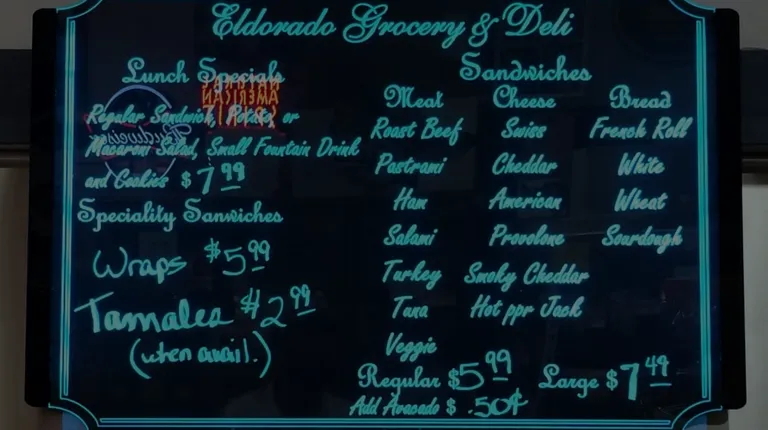 Eldorado Grocery & Deli
Lunch Specials
Regular Sandwich, Potato or
Macaroni Salad, Small Fountain Drink
and Cookies $7.99
Speciality Sanwiches
Wraps $5.99
Tamales $2.99
(when avail.)
Sandwiches
Meat Cheese Bread
Roast Beef Swiss French Roll
Pastrami Cheddar White
Ham American Wheat
Salami Provolone Sourdough
Turkey Smoky Cheddar
Tuna Hot ppr Jack
Veggie
Regular $5.99 Large $7.49
Add Avacado $ .50¢
Budweiser
AMERICAN